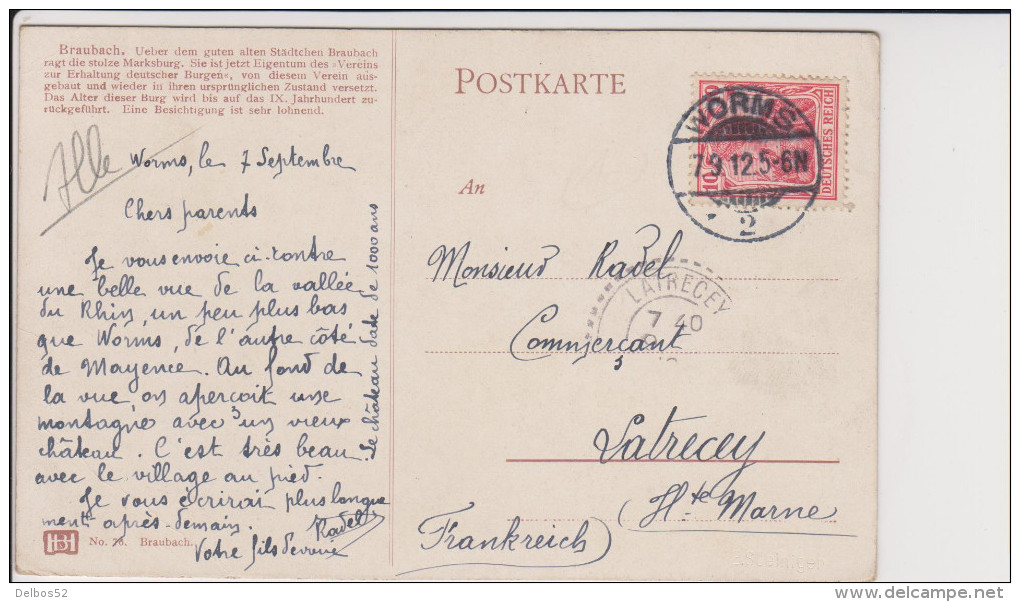 Braubach. Ueber dem guten alten Städtchen Braubach
ragt die stolze Marksburg. Sie ist jetzt Eigentum des »Vereins
zur Erhaltung deutscher Burgen«, von diesem Verein aus-
gebaut und wieder in ihren ursprünglichen Zustand versetzt.
Das Alter dieser Burg wird bis auf das IX. Jahrhundert zu-
rückgeführt. Eine Besichtigung ist sehr lohnend.
Alle
Worms, le 7 Septembre
Chers parents
Je vous envoie ci-contre
une belle vue de la vallée
du Rhin, un peu plus bas
que Worms, de l'autre côté
de Mayence. Au fond de
la vue, on aperçoit une
montagne avec un vieux
château. C'est très beau
avec le village au pied.
Je vous écrirai plus longue
ment après-demain.
Votre fils dévoué
Radel
Le château date de 1000 ans
No. 78. Braubach.
HBH
POSTKARTE
10
DEUTSCHES REICH
WORMS
7.9.12.5-6N
2
An
Monsieur Radel
LATRECEY
7 40
Commerçant
Latrecey
Hte Marne
(Frankreich)
Delbos52
www.delcampe.net